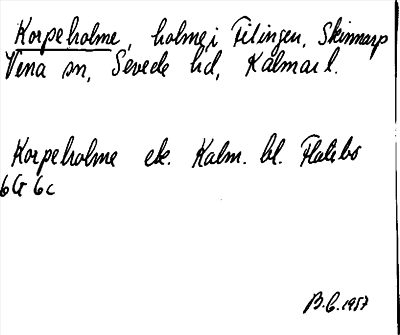 Korpeholme, holme i Flingen, Skinnarp
Vena sn, Sevede hd, Kalmar l.
Korpeholme ek. Kalm. bl. Flatebo
6G 6c
B.G. 1957